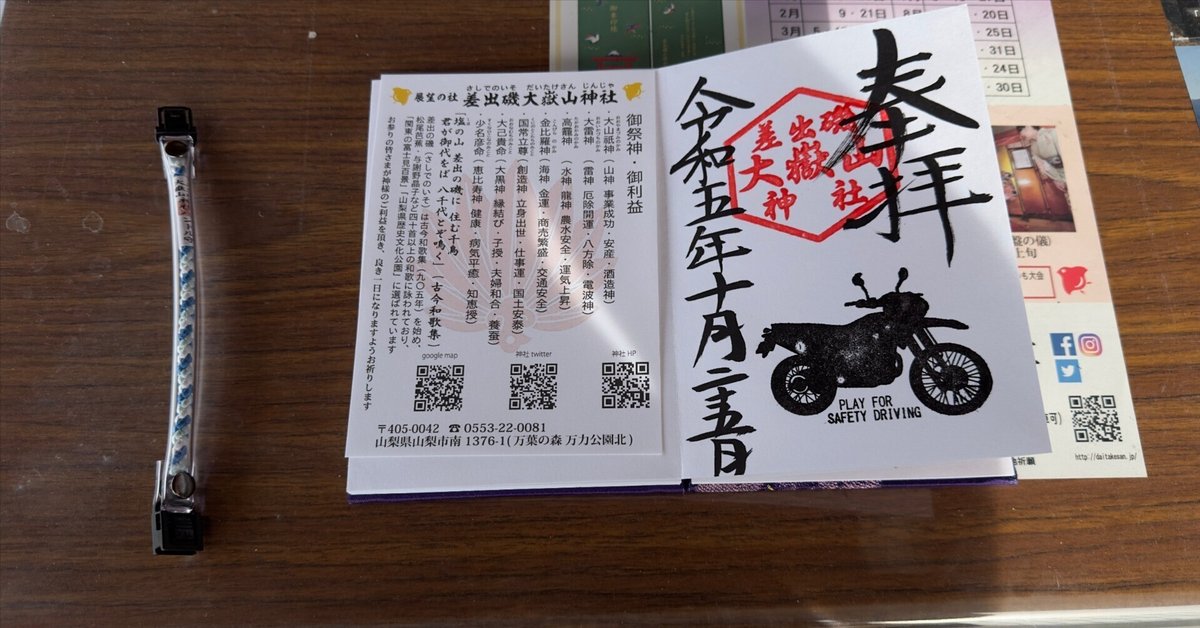 展望の社 差出磯大嶽山神社
さしでのいそ だいたけさん じんじゃ
御祭神・御利益
・大山祇神（山神 事業成功・安産・酒造神）
・大雷神（雷神 厄除開運・八方除・電波神）
・高龗神（水神 龍神 農水安全・運気上昇）
・金比羅神（海神 金運・商売繁盛・交通安全）
・国常立尊（創造神 立身出世・仕事運・国土安泰）
・大己貴命（大黒神 縁結び・子授・夫婦和合・養蚕）
・少名彦命（恵比寿神 健康・病気平癒・知恵授）
「塩の山 差出の磯に 住む千鳥
君が御代をば 八千代とぞ鳴く」（古今和歌集）
差出の磯（さしでのいそ）は古今和歌集（九〇五年）を始め、
松尾芭蕉・与謝野晶子など四十首以上の和歌に詠われており、
「関東の富士見百景」「山梨県歴史文化公園」に選ばれています
お参りの皆さまが神様のご利益を頂き、良き一日になりますようお祈りします
google map
神社 twitter
神社 HP
〒405-0042 ☎ 0553-22-0081
山梨県山梨市南 1376-1(万葉の森 万力公園北)
奉拝
差出磯
大嶽山
神社
令和五年十月二十五日
PLAY FOR
SAFETY DRIVING
2月 9・21日 8月 20日
3月
25日
31日
24日
30日
http://daitakesan.jp/